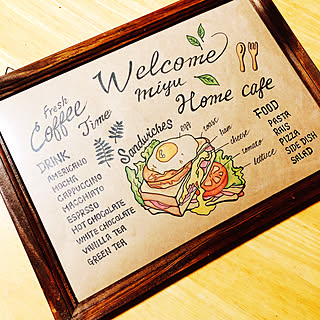 Welcome
miyu
Home cafe
Fresh
Coffee
Time
DRINK
AMERICANO
MOCHA
CAPPUCCINO
MACCHIATO
ESPRSSO
HOT CHOCOLATE
WHITE CHOCOLATE
VANILLA TEA
GREEN TEA
Sandwiches
egg
ham
cheese
tomato
lettuce
FOOD
PASTA
RAIS
PIZZA
SIDE DISH
SALAD